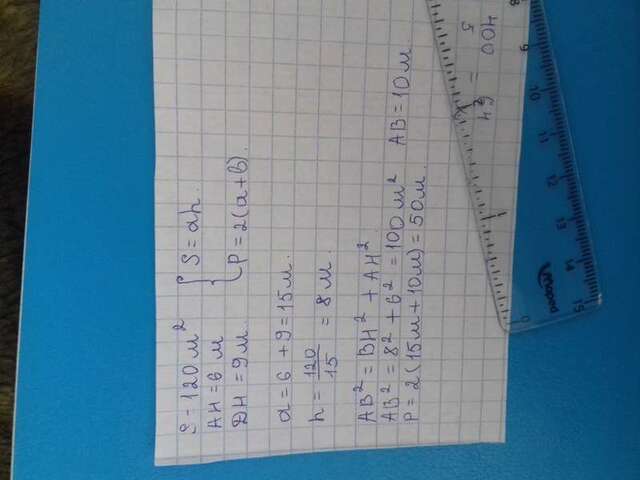 S = 120 м²
AH = 6 м
DH = 9 м.
S = ah.
P = 2(a+b).
a = 6 + 9 = 15 м.
h = 120/15 = 8 м.
AB² = BH² + AH²
AB² = 8² + 6² = 100 м² AB = 10 м.
P = 2(15м + 10м) = 50 м.
0
15 14 13 12 11 10 9 8